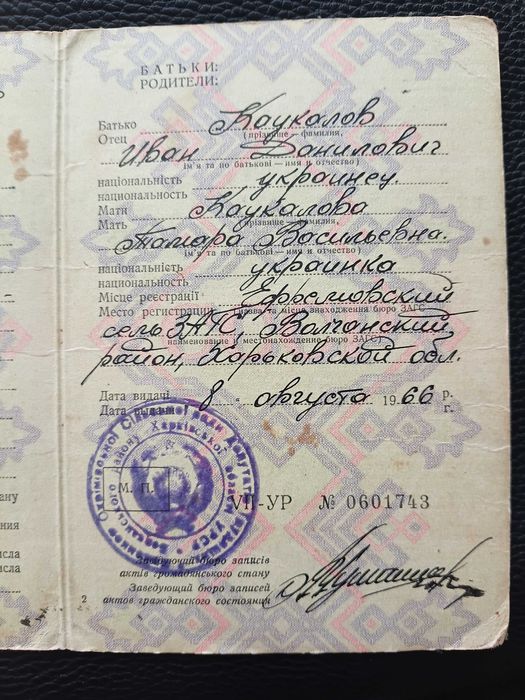 БАТЬКИ:
РОДИТЕЛИ:
Батько Каукалов
Отец (прізвище — фамилия,
Иван Данилович
ім'я та по батькові — имя и отчество)
національність украинец.
национальность
Мати Каукалова
Мать (прізвище — фамилия,
Тамара Васильевна.
ім'я та по батькові — имя и отчество)
національність украинка
национальность
Місце реєстрації
Место регистрации (назва та місце знаходження бюро ЗАГС
сель ЗАГС, Волчанский
наименование и местонахождение бюро ЗАГС)
район, Харьковской обл.
Дата видачі 8 августа 1966 р.
Дата выдачи г.
М. П.
VII-УР № 0601743
Завідуючий бюро записів
актів громадянського стану
Заведующий бюро записей
актов гражданского состояния
2